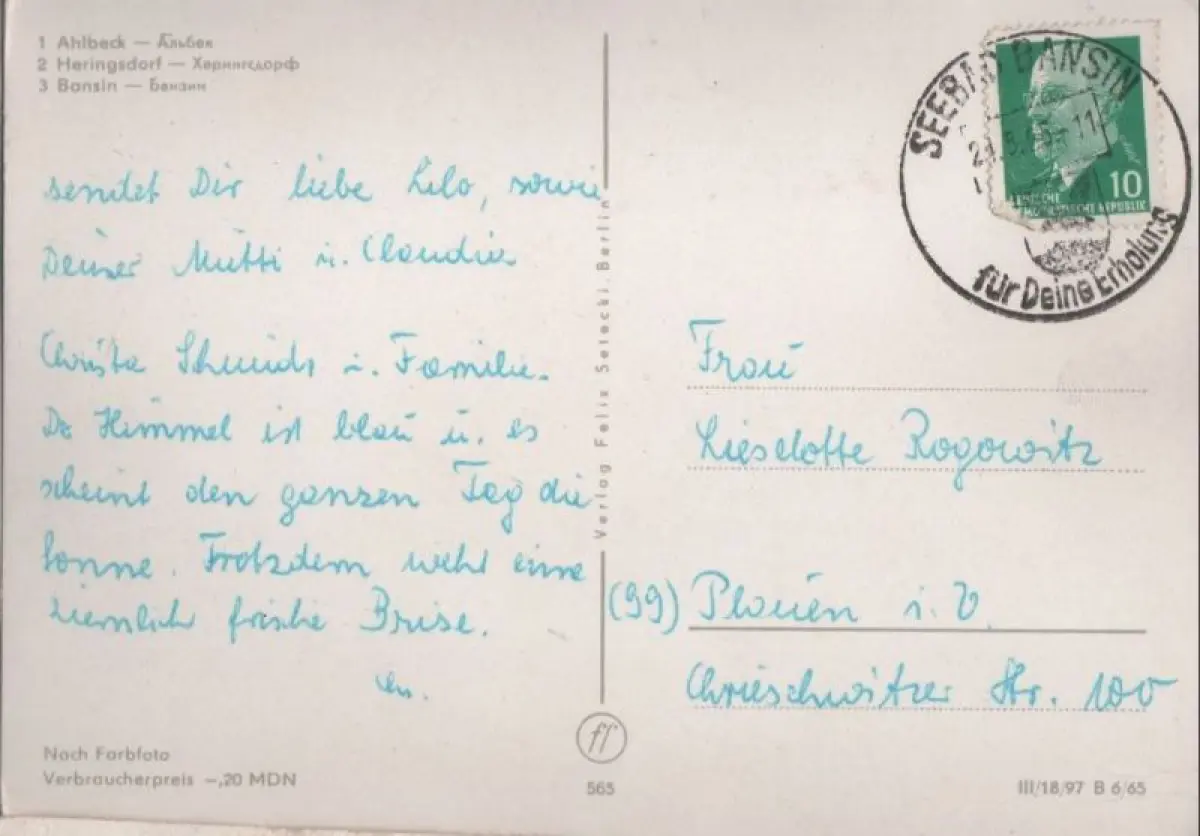 1 Ahlbeck — Альбек
2 Heringsdorf — Херингсдорф
3 Bansin — Банзин
sendet Dir liebe Lilo, sowie
Deiner Mutti u. Claudia
Christa Schmidt u. Familie.
De Himmel ist blau u. es
scheint den ganzen Tag die
Sonne. Trotzdem weht eine
ziemlich frische Brise.
Verlag Felix Setecki, Berlin
SEEBAD BANSIN
für Deine Erholung
10
DEUTSCHE
DEMOKRATISCHE REPUBLIK
Frau
Lieselotte Rogowitz
(99) Plauen i. V.
Chrieschwitzer Str. 100
Nach Farbfoto
Verbraucherpreis –,20 MDN
ff
565
III/18/97 B 6/65